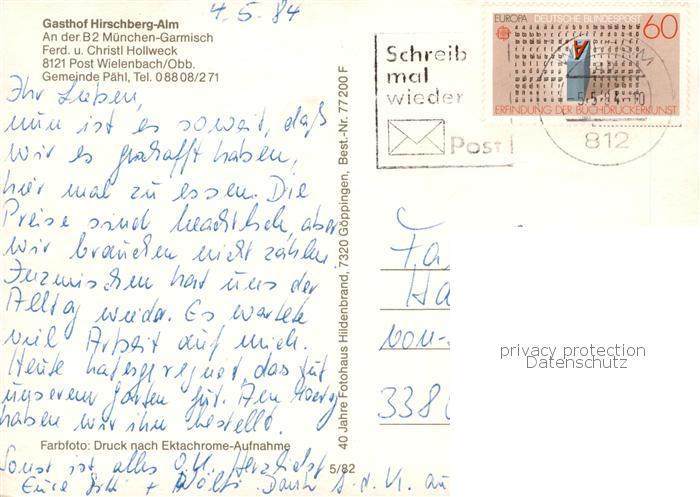 4.5.84
Gasthof Hirschberg-Alm
An der B2 München-Garmisch
Ferd. u. Christl Hollweck
8121 Post Wielenbach/Obb.
Gemeinde Pähl, Tel. 0 88 08/2 71
Ihr Lieben,
nun ist es soweit, daß
wir es geschafft haben,
hier mal zu essen. Die
Preise sind beachtlich, aber
wir brauchen nicht zählen.
Inzwischen hat uns der
Alltag wieder. Es wartete
viel Arbeit auf mich.
Heute hat es geregnet, das tut
unserem Garten gut. Am
haben wir ihn bestellt.
Farbfoto: Druck nach Ektachrome-Aufnahme
Sonst ist alles O.K. Herzlichst
Eure + Dank
5/82
40 Jahre Fotohaus Hildenbrand, 7320 Göppingen, Best.-Nr. 77 200 F
Schreib
mal
wieder
Post
EUROPA DEUTSCHE BUNDESPOST 60
A
ERFINDUNG DER BUCHDRUCKERKUNST
5.5.84
812
Fa
Ha
von-
338
privacy protection
Datenschutz